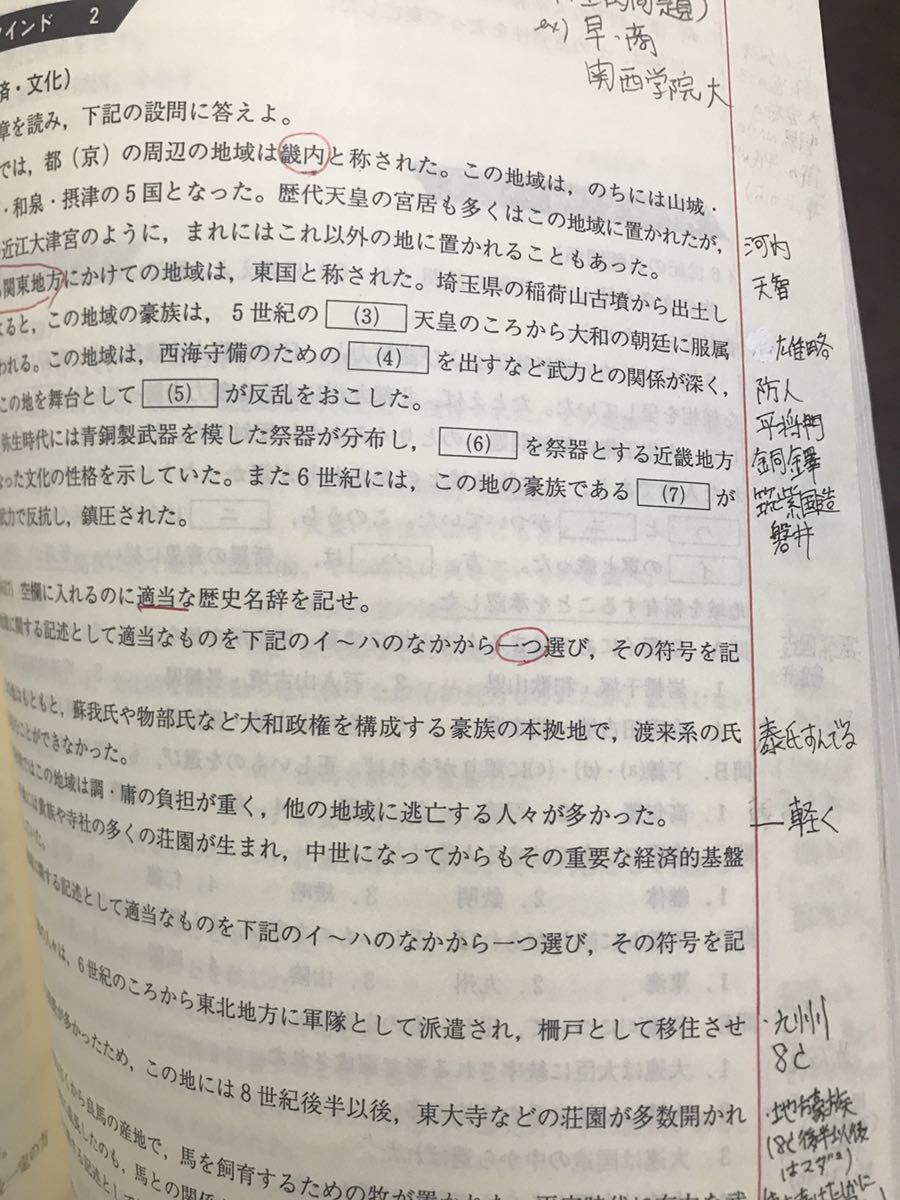 インド 2
ex) 早・商
関西学院大
済・文化)
章を読み，下記の設問に答えよ。
では，都（京）の周辺の地域は畿内と称された。この地域は，のちには山城・
・和泉・摂津の5国となった。歴代天皇の宮居も多くはこの地域に置かれたが，
近江大津宮のように，まれにはこれ以外の地に置かれることもあった。
河内
関東地方にかけての地域は，東国と称された。埼玉県の稲荷山古墳から出土し
天智
なると，この地域の豪族は，5世紀の (3) 天皇のころから大和の朝廷に服属
雄略
われる。この地域は，西海守備のための (4) を出すなど武力との関係が深く，
防人
この地を舞台として (5) が反乱をおこした。
平将門
弥生時代には青銅製武器を模した祭器が分布し， (6) を祭器とする近畿地方
銅鐸
なった文化の性格を示していた。また6世紀には，この地の豪族である (7) が
筑紫国造
磐井
武力で反抗し，鎮圧された。
空欄に入れるのに適当な歴史名辞を記せ。
に関する記述として適当なものを下記のイ～ハのなかから一つ選び，その符号を記
はもともと，蘇我氏や物部氏など大和政権を構成する豪族の本拠地で，渡来系の氏
秦氏すんでる
ことができなかった。
ではこの地域は調・庸の負担が重く，他の地域に逃亡する人々が多かった。
軽く
には貴族や寺社の多くの荘園が生まれ，中世になってからもその重要な経済的基盤
に関する記述として適当なものを下記のイ～ハのなかから一つ選び，その符号を記
の人々は，6世紀のころから東北地方に軍隊として派遣され，柵戸として移住させ
・九州
8c
が多かったため，この地には8世紀後半以後，東大寺などの荘園が多数開かれ
・地方豪族
(8c後半以後
はマダ)
から良馬の産地で，馬を飼育するための牧が置かれた